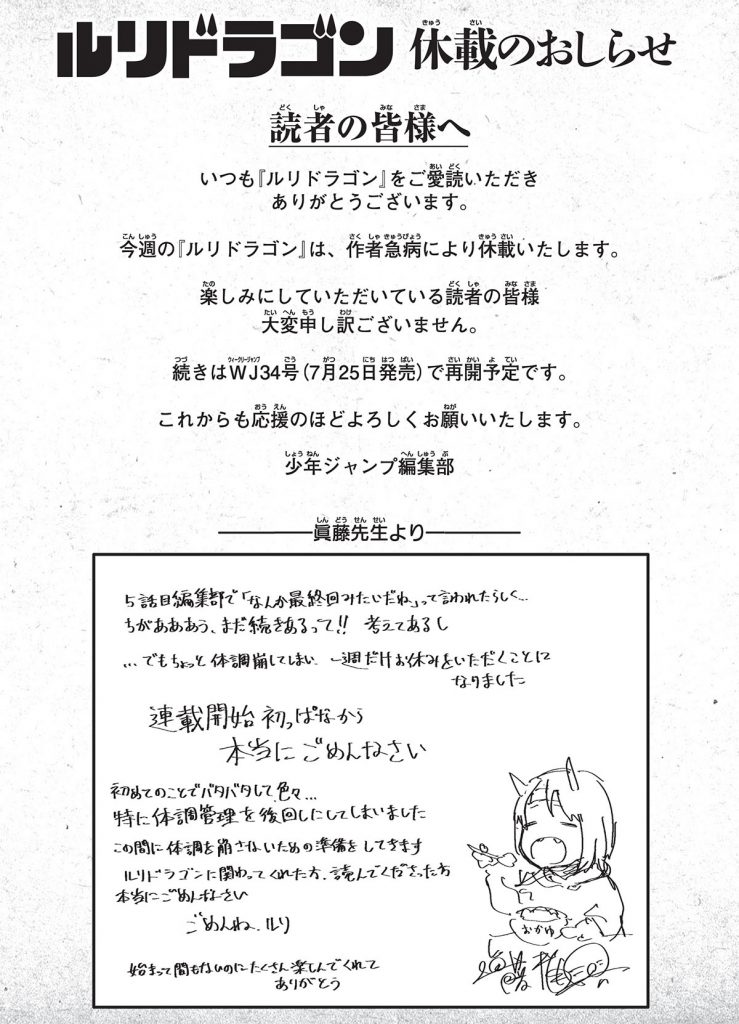 ルリドラゴン 休載のおしらせ
読者の皆様へ
いつも『ルリドラゴン』をご愛読いただき
ありがとうございます。
今週の『ルリドラゴン』は、作者急病により休載いたします。
楽しみにしていただいている読者の皆様
大変申し訳ございません。
続きはWJ34号(7月25日発売)で再開予定です。
これからも応援のほどよろしくお願いいたします。
少年ジャンプ編集部
眞藤先生より
5話目編集部で「なんか最終回みたいだね」って言われたらしく…
ちがあああう、まだ続きあるって!! 考えてあるし
…でもちょっと体調崩してしまい 一週だけお休みをいただくことに
なりました
連載開始初っぱなから
本当にごめんなさい
初めてのことでバタバタして色々…
特に体調管理を後回しにしてしまいました
この間に体調を崩さないための準備をしてきます
ルリドラゴンに関わってくれた方、読んでくださった方
本当にごめんなさい
ごめんね、ルリ
始まって間もないのにたくさん楽しんでくれて
ありがとう
おかゆ